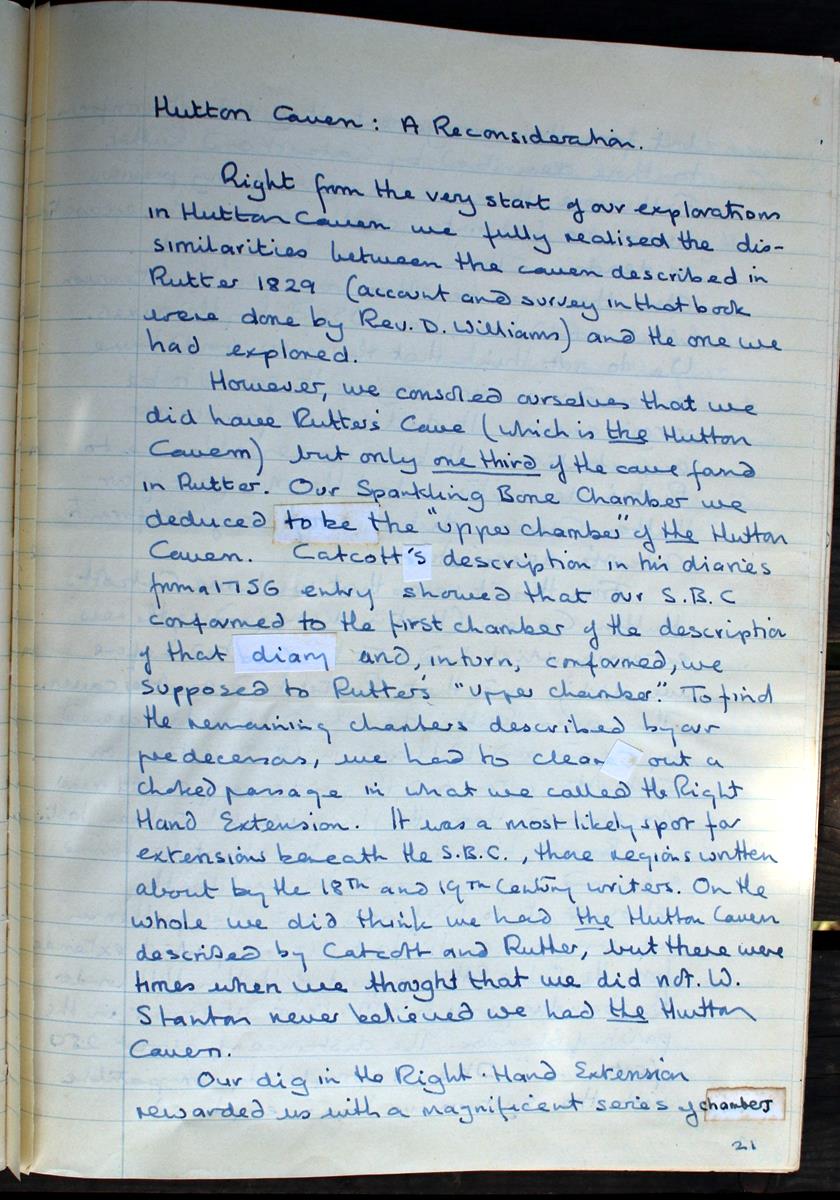 Hutton Cavern: A Reconsideration.
Right from the very start of our explorations
in Hutton Cavern we fully realised the dis-
similarities between the cavern described in
Rutter 1829 (account and survey in that book
were done by Rev. D. Williams) and the one we
had explored.
However, we consoled ourselves that we
did have Rutter's Cave (which is the Hutton
Cavern) but only one third of the cave found
in Rutter. Our Sparkling Bone Chamber we
deduced to be the "upper chamber" of the Hutton
Cavern. Catcott's description in his diaries
from a 1756 entry showed that our S.B.C
conformed to the first chamber of the description
of that diary and, in turn, conformed, we
supposed to Rutter's "upper chamber." To find
the remaining chambers described by our
predecessors, we had to clear out a
choked passage in what we called the Right
Hand Extension. It was a most likely spot for
extensions beneath the S.B.C., those regions written
about by the 18TH and 19TH Century writers. On the
whole we did think we had the Hutton Cavern
described by Catcott and Rutter, but there were
times when we thought that we did not. W.
Stanton never believed we had the Hutton
Cavern.
Our dig in the Right-Hand Extension
rewarded us with a magnificent series of chambers
21